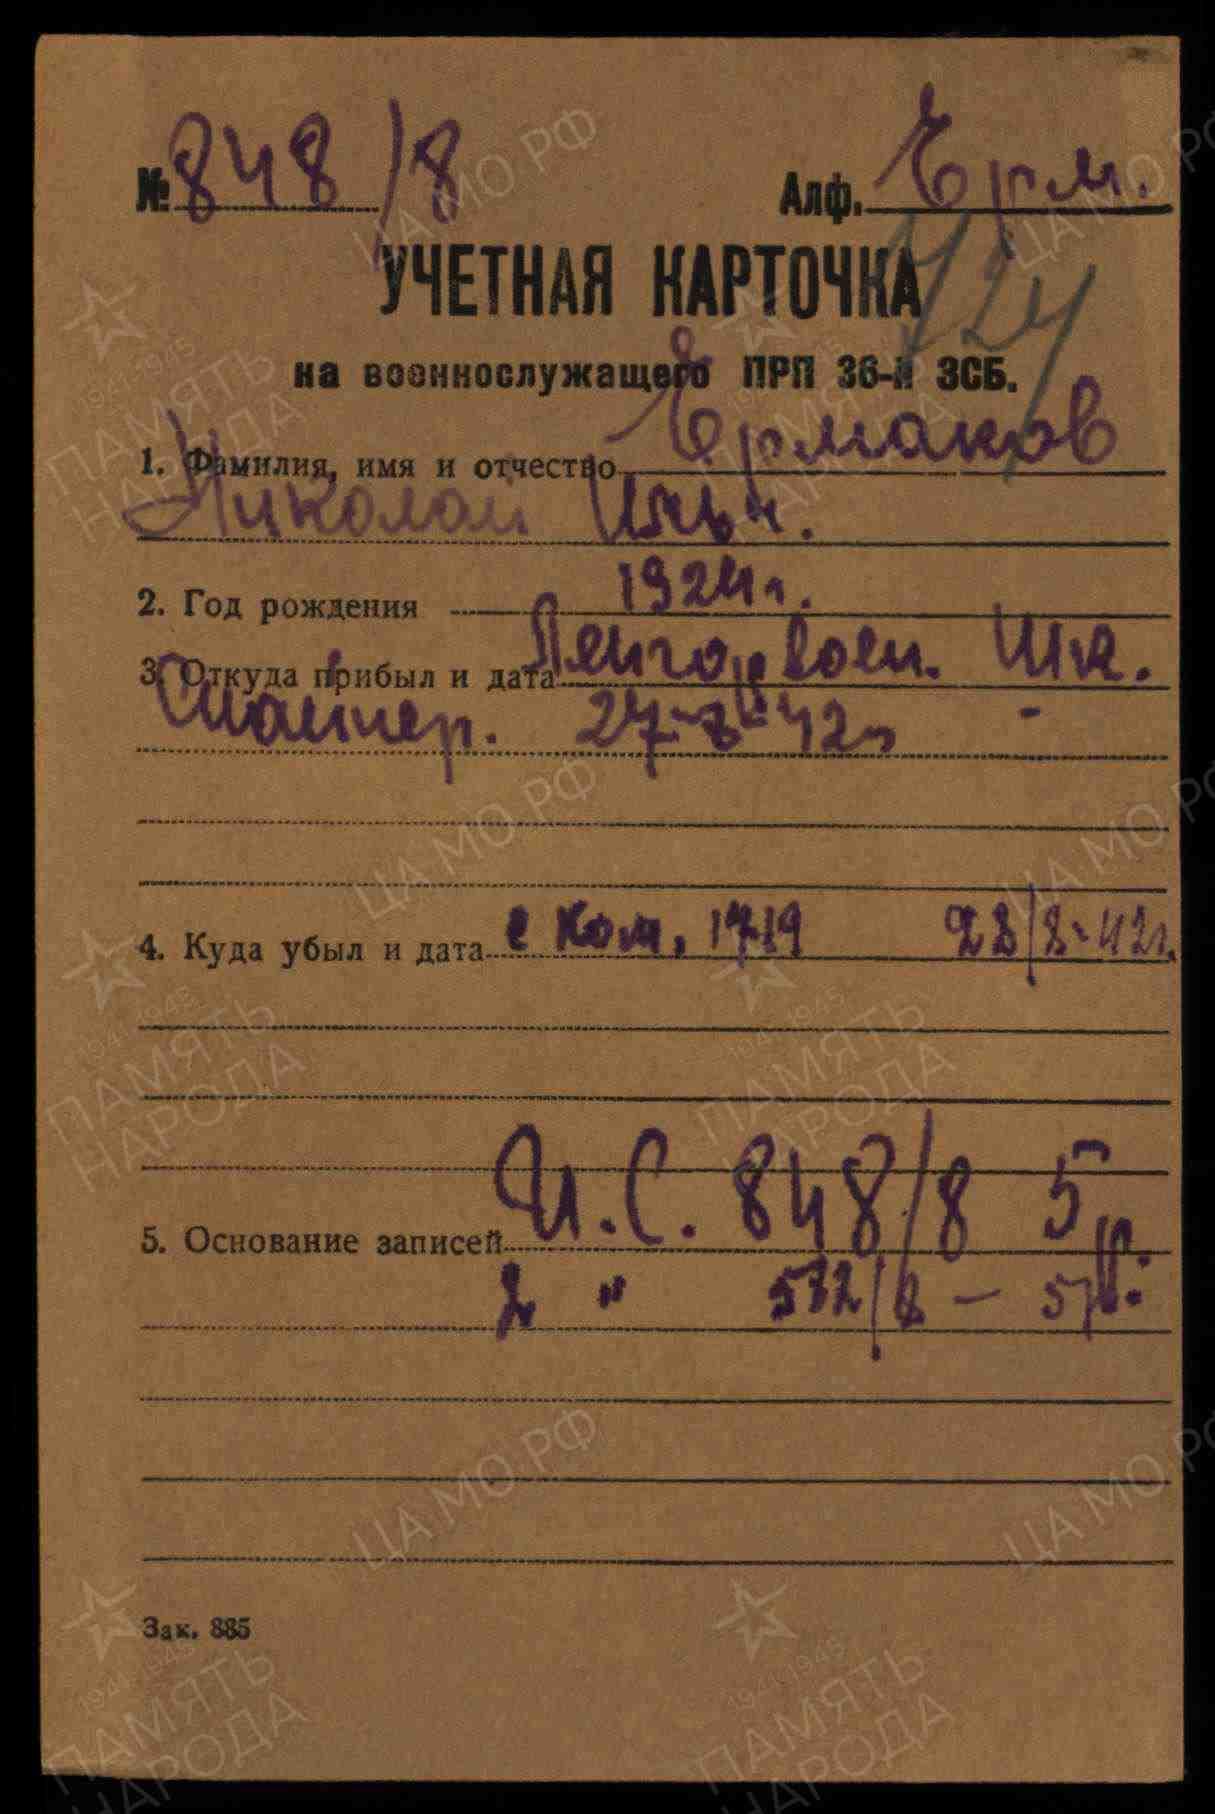 № 848/8 Алф. Ерм.
724
УЧЕТНАЯ КАРТОЧКА
на военнослужащего ПРП 36-й ЗСБ.
1. Фамилия, имя и отчество Ермаков
Николай Ильич.
2. Год рождения 1924 г.
3. Откуда прибыл и дата воен. шк.
Снайпер. 27-8-42г
4. Куда убыл и дата с ком. 1719 28/8-42г.
5. Основание записей И.С. 848/8 5
" 532/8 — 5
Зак. 885
ЦА МО РФ
1941-1945
ПАМЯТЬ
НАРОДА